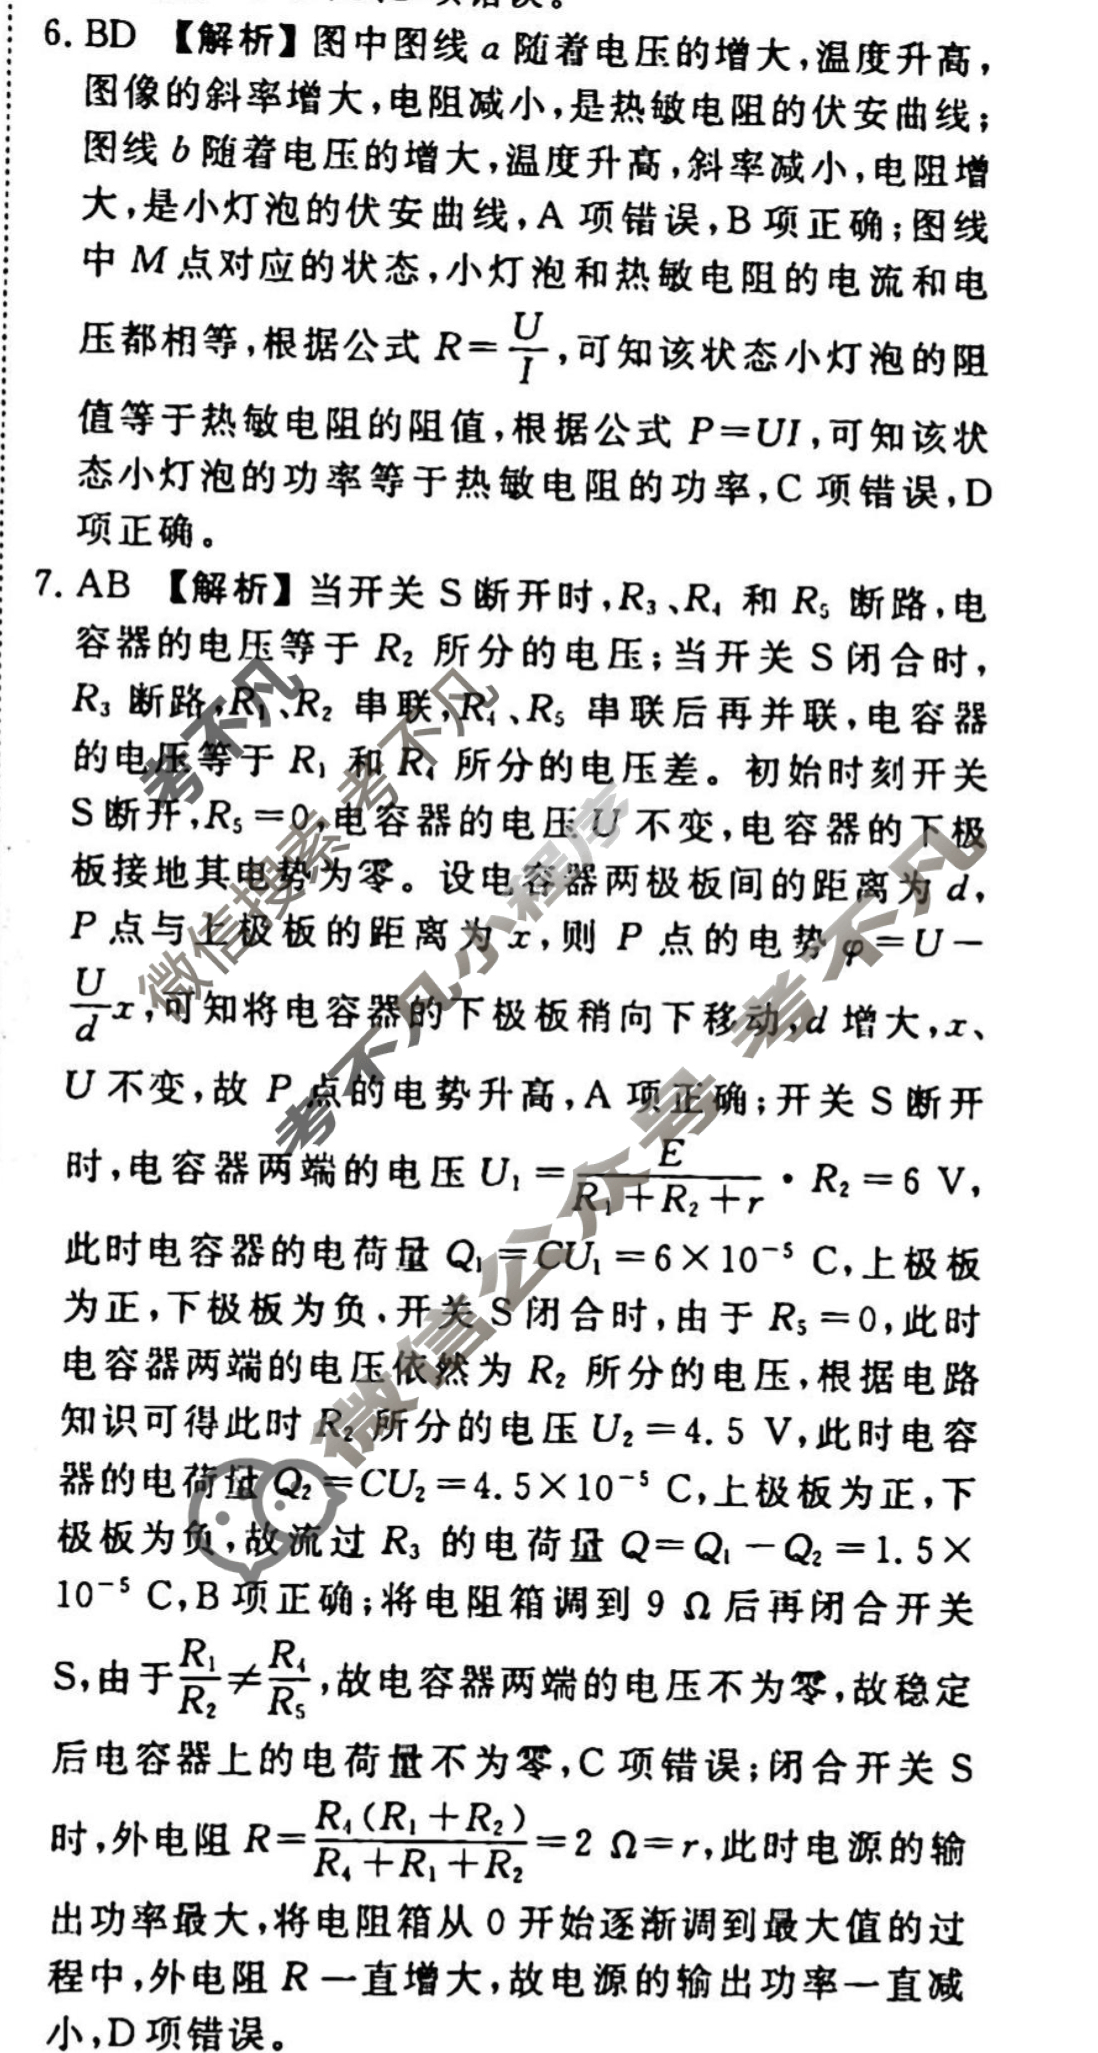 6. BD 【解析】图中图线 a 随着电压的增大,温度升高,
图像的斜率增大,电阻减小,是热敏电阻的伏安曲线;
图线 b 随着电压的增大,温度升高,斜率减小,电阻增
大,是小灯泡的伏安曲线,A 项错误,B 项正确;图线
中 M 点对应的状态,小灯泡和热敏电阻的电流和电
压都相等,根据公式 R=U/I,可知该状态小灯泡的阻
值等于热敏电阻的阻值,根据公式 P=UI,可知该状
态小灯泡的功率等于热敏电阻的功率,C 项错误,D
项正确。
7. AB 【解析】当开关 S 断开时,R₃、R₄ 和 R₅ 断路,电
容器的电压等于 R₂ 所分的电压;当开关 S 闭合时,
R₃ 断路,R₁、R₂ 串联,R₄、R₅ 串联后再并联,电容器
的电压等于 R₁ 和 R₄ 所分的电压差。初始时刻开关
S 断开,R₅=0,电容器的电压 U 不变,电容器的下极
板接地其电势为零。设电容器两极板间的距离为 d,
P 点与上极板的距离为 x,则 P 点的电势 φ=U-
U/d x,可知将电容器的下极板稍向下移动,d 增大,x、
U 不变,故 P 点的电势升高,A 项正确;开关 S 断开
时,电容器两端的电压 U₁=E/(R₁+R₂+r)·R₂=6 V,
此时电容器的电荷量 Q₁=CU₁=6×10⁻⁵ C,上极板
为正,下极板为负,开关 S 闭合时,由于 R₅=0,此时
电容器两端的电压依然为 R₂ 所分的电压,根据电路
知识可得此时 R₂ 所分的电压 U₂=4.5 V,此时电容
器的电荷量 Q₂=CU₂=4.5×10⁻⁵ C,上极板为正,下
极板为负,故流过 R₃ 的电荷量 Q=Q₁-Q₂=1.5×
10⁻⁵ C,B 项正确;将电阻箱调到 9 Ω 后再闭合开关
S,由于 R₁/R₂≠R₄/R₅,故电容器两端的电压不为零,故稳定
后电容器上的电荷量不为零,C 项错误;闭合开关 S
时,外电阻 R=R₄(R₁+R₂)/(R₄+R₁+R₂)=2 Ω=r,此时电源的输
出功率最大,将电阻箱从 0 开始逐渐调到最大值的过
程中,外电阻 R 一直增大,故电源的输出功率一直减
小,D 项错误。
考不凡
微信搜索 考不凡
考不凡小程序
微信公众号 考不凡